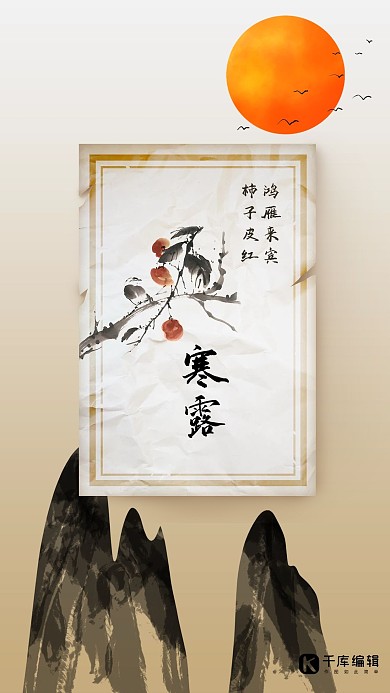 鸿雁来宾
柿子皮红
寒露
千库编辑